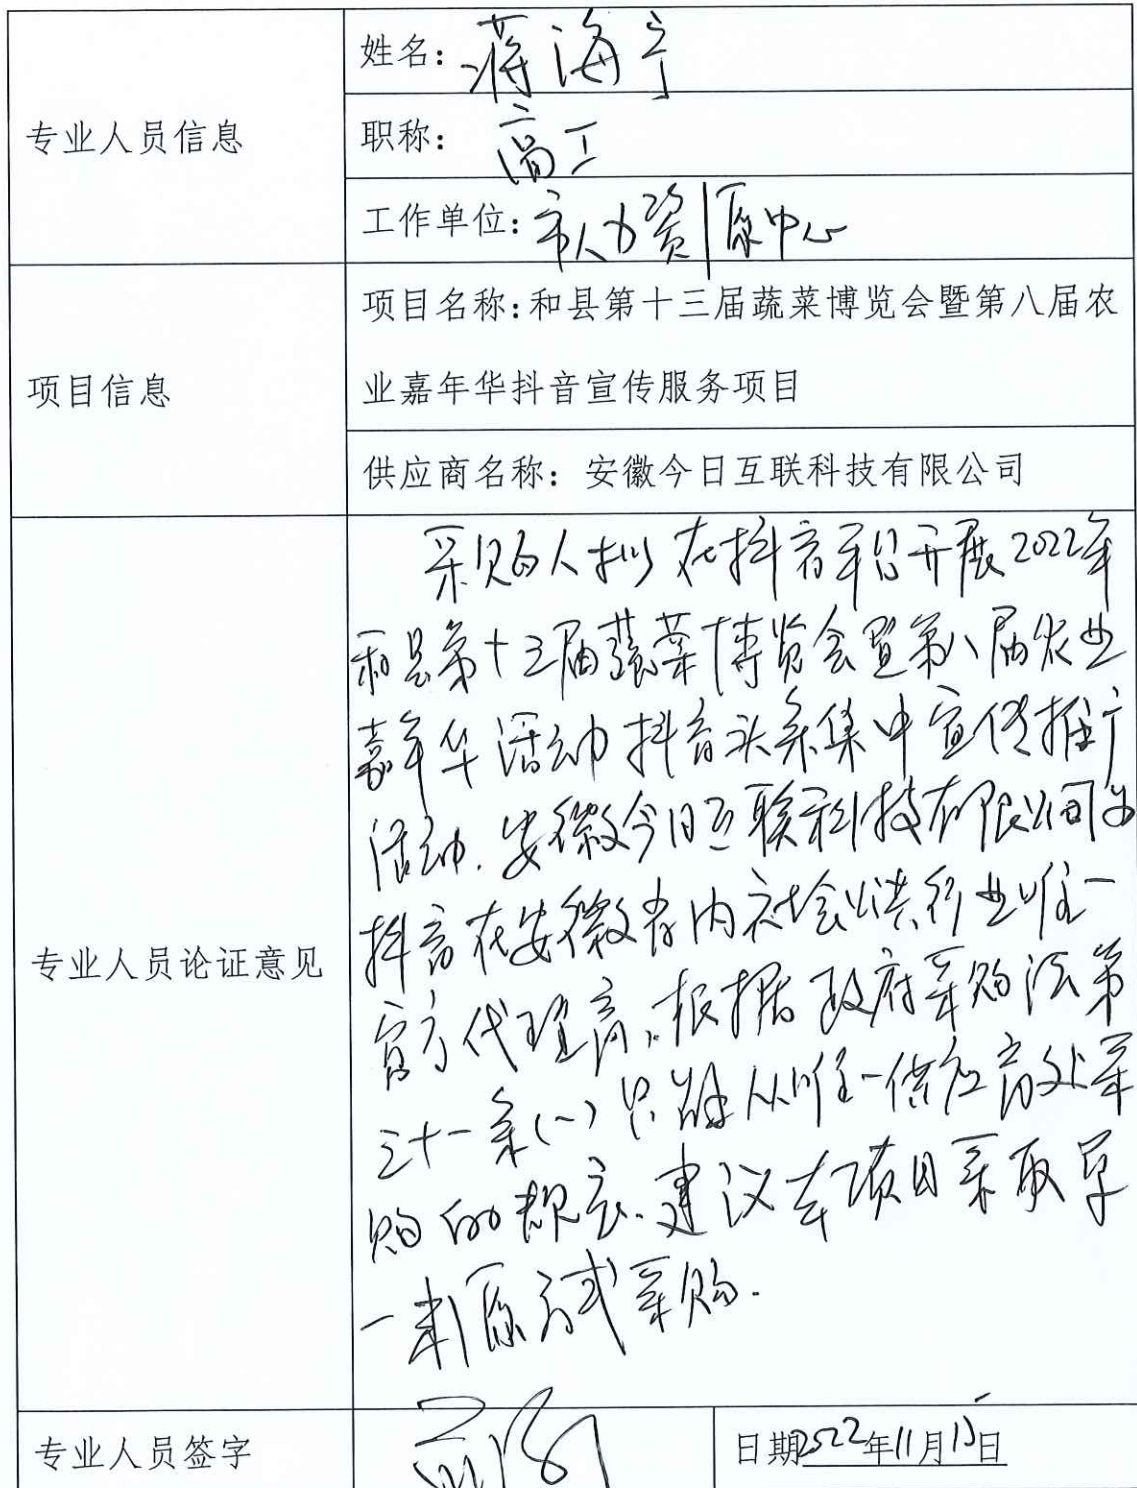 专业人员信息
姓名:蒋海宁
职称:高工
工作单位:市人力资源中心
项目信息
项目名称:和县第十三届蔬菜博览会暨第八届农
业嘉年华抖音宣传服务项目
供应商名称:安徽今日互联科技有限公司
专业人员论证意见
采购人拟在抖音平台开展2022年
和县第十三届蔬菜博览会暨第八届农业
嘉年华活动抖音头条集中宣传推广
活动.安徽今日互联科技有限公司为
抖音在安徽省内社会公共行业唯一
官方代理商,根据政府采购法第
三十一条(一)只能从唯一供应商处采
购的规定.建议本项目采取单
一来源方式采购.
专业人员签字
日期2022年11月15日